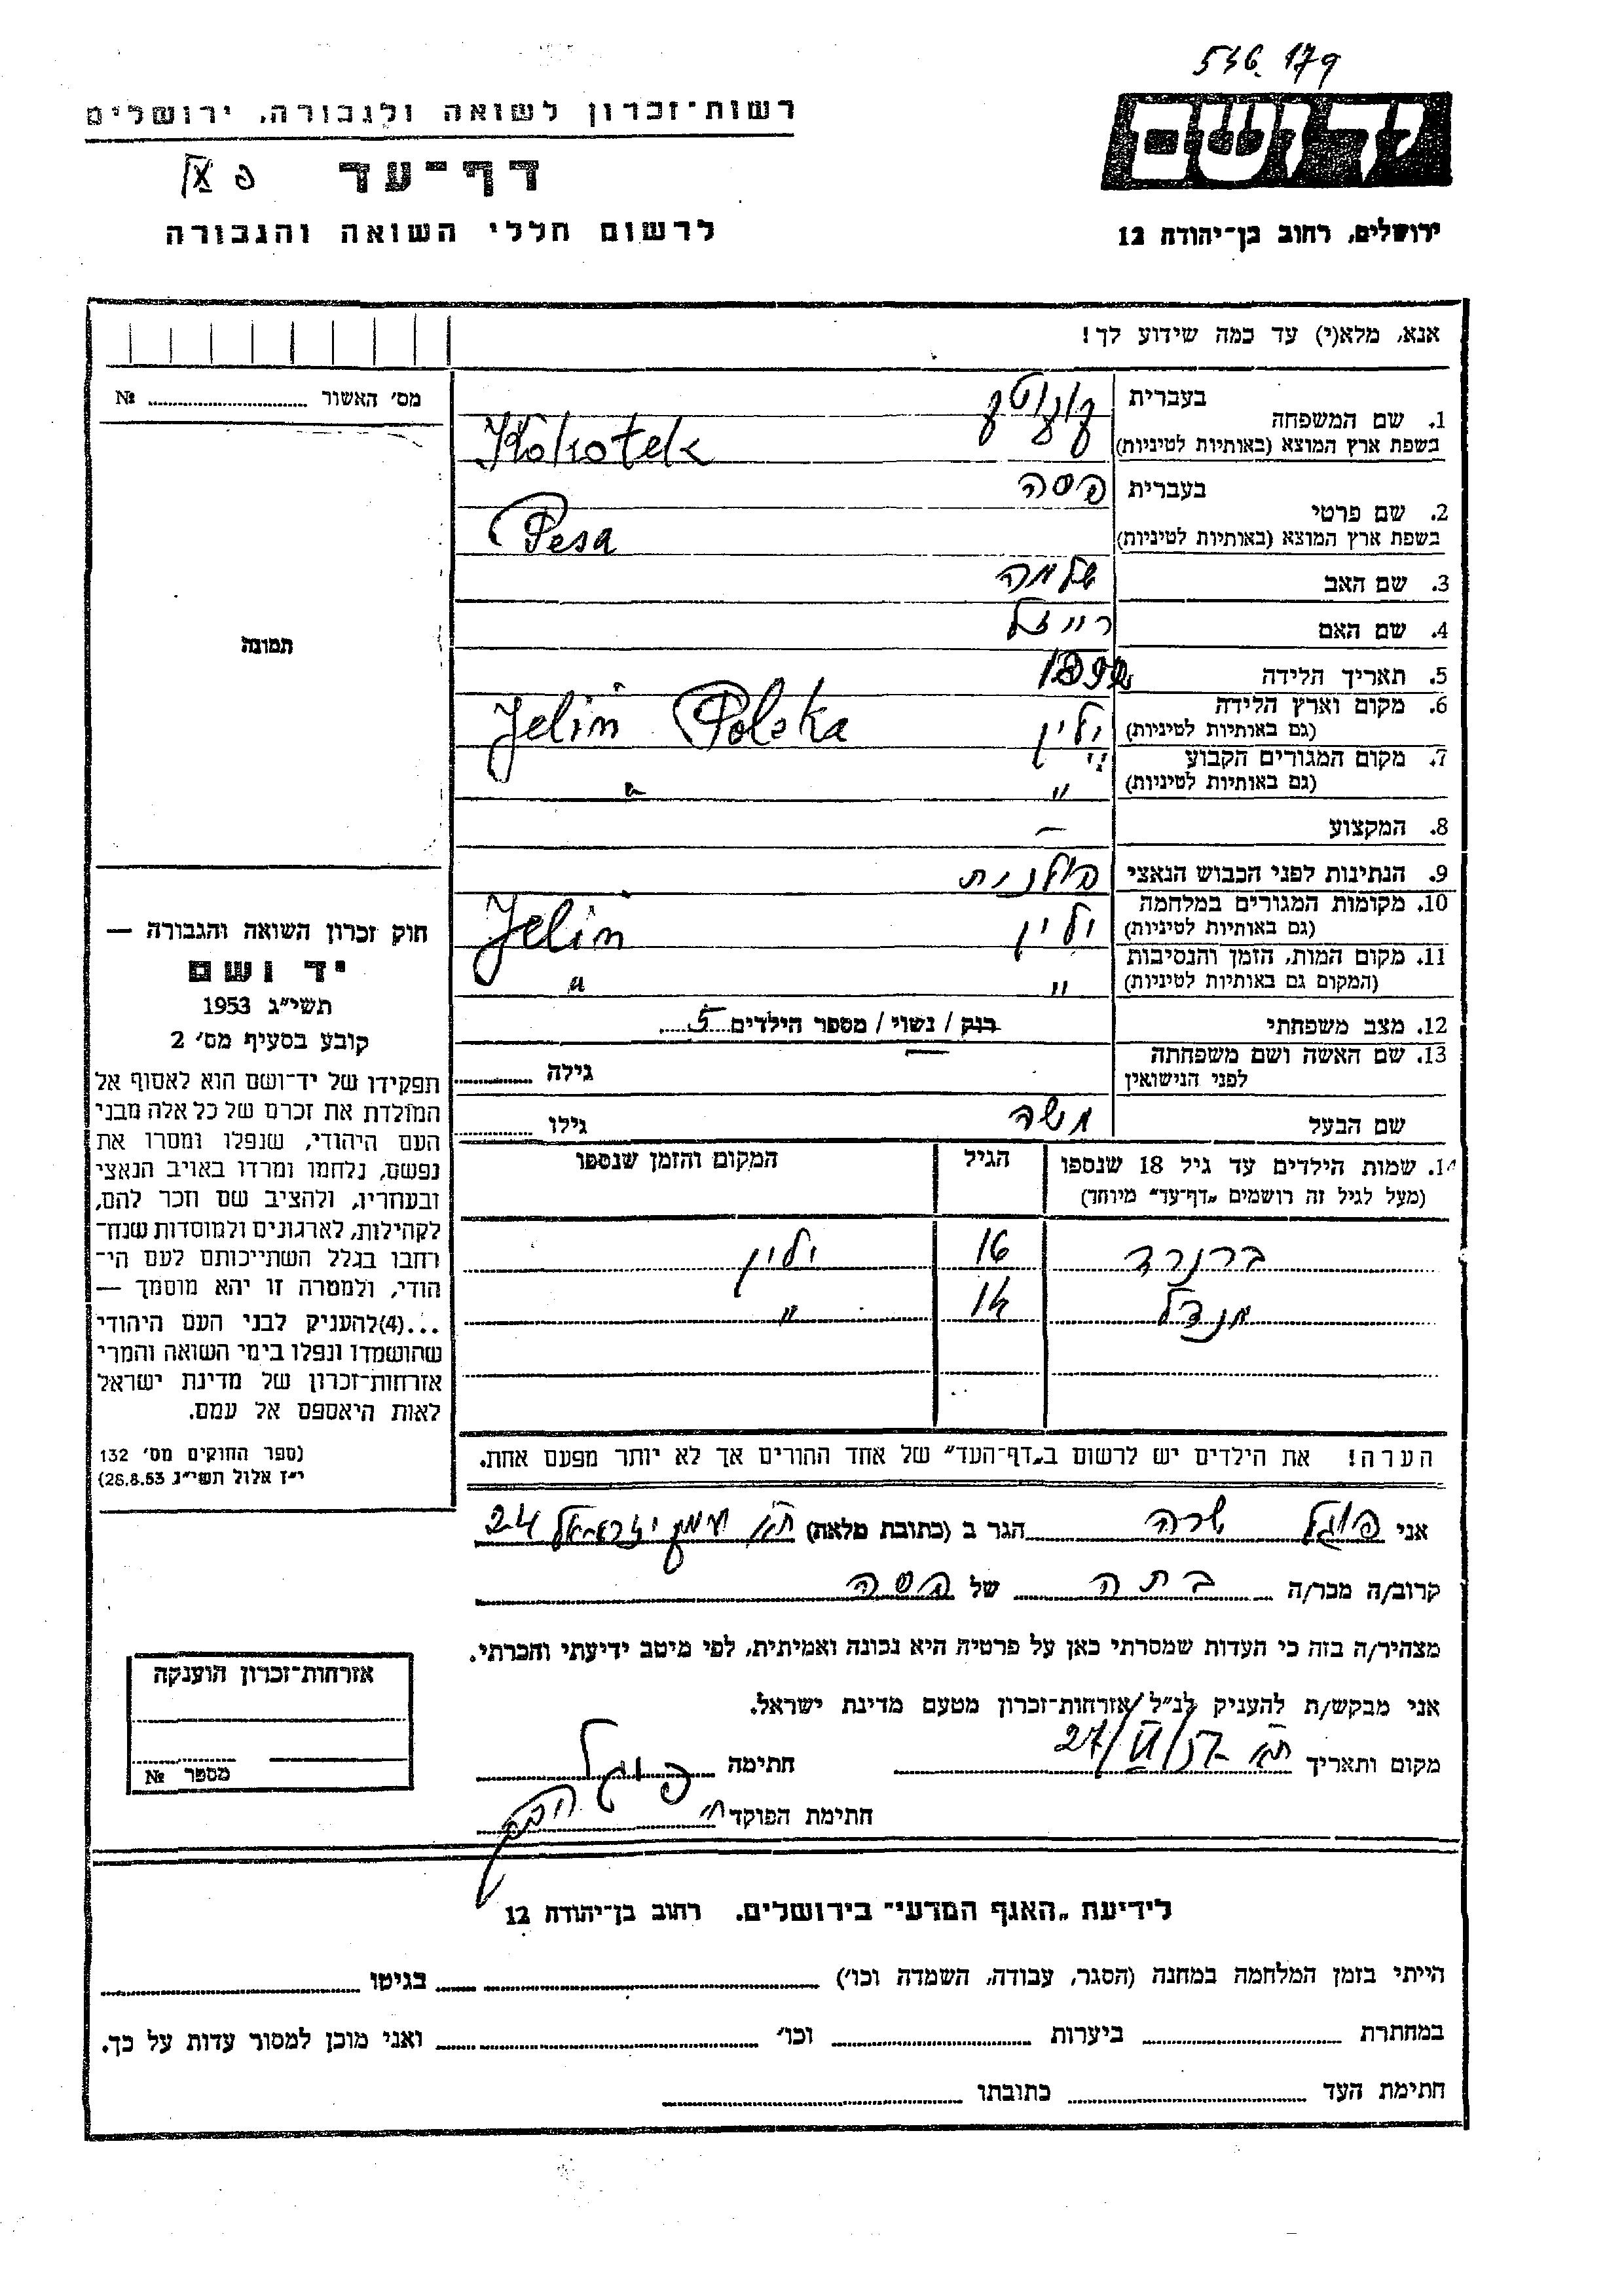 546.179
רשות־זכרון לשואה ולגבורה, ירושלים
יד ושם
דף־עד
לרשום חללי השואה והגבורה
ירושלים, רחוב בן־יהודה 12
אנא, מלא(י) עד כמה שידוע לך!
מס' האשור № ........
1. שם המשפחה
בעברית קוקוטק
בשפת ארץ המוצא (באותיות לטיניות) Kokotek
2. שם פרטי
בעברית פסה
בשפת ארץ המוצא (באותיות לטיניות) Pesa
3. שם האב שלמה
4. שם האם רייזל
תמונה
5. תאריך הלידה
6. מקום וארץ הלידה ילין Jelin Polska
(גם באותיות לטיניות)
7. מקום המגורים הקבוע
(גם באותיות לטיניות) " "
8. המקצוע —
9. הנתינות לפני הכבוש הנאצי פולנית
10. מקומות המגורים במלחמה
(גם באותיות לטיניות) ילין Jelin
11. מקום המות, הזמן והנסיבות
(המקום גם באותיות לטיניות) " "
12. מצב משפחתי רוק / נשוי / מספר הילדים 5
13. שם האשה ושם משפחתה
לפני הנישואין — גילה
שם הבעל משה גילו
14. שמות הילדים עד גיל 18 שנספו הגיל המקום והזמן שנספו
(מעל לגיל זה רושמים „דף־עד״ מיוחד)
ברנרד 16 ילין
מנדל 14 "
הערה! את הילדים יש לרשום ב„דף־העד״ של אחד ההורים אך לא יותר מפעם אחת.
חוק זכרון השואה והגבורה —
יד ושם
תשי״ג 1953
קובע בסעיף מס' 2
תפקידו של יד־ושם הוא לאסוף אל
המולדת את זכרם של כל אלה מבני
העם היהודי, שנפלו ומסרו את
נפשם, נלחמו ומרדו באויב הנאצי
ובעוזריו, ולהציב שם וזכר להם,
לקהילות, לארגונים ולמוסדות שנח־
רחבו בגלל השתייכותם לעם הי־
הודי, ולמטרה זו יהא מוסמך —
...(4)להעניק לבני העם היהודי
שהושמדו ונפלו בימי השואה והמרי
אזרחות־זכרון של מדינת ישראל
לאות היאספם אל עמם.
(ספר החוקים מס' 132
י״ז אלול תשי״ג 28.8.53)
אני פוגל שרה הגר ב (כתובת מלאה) ת״א עמק יזרעאל 24
קרוב/ה מכר/ה בתה של פסה
מצהיר/ה בזה כי העדות שמסרתי כאן על פרטיה היא נכונה ואמיתית, לפי מיטב ידיעתי והכרתי.
אני מבקש/ת להעניק לנ״ל אזרחות־זכרון מטעם מדינת ישראל.
מקום ותאריך ת״א 27/VI/57 חתימה פוגל
חתימת הפוקד
אזרחות־זכרון הוענקה
מספר №
לידיעת „האגף המדעי״ בירושלים. רחוב בן־יהודה 12
הייתי בזמן המלחמה במחנה (הסגר, עבודה, השמדה וכו') בגיטו
במחתרת ביערות וכו' ואני מוכן למסור עדות על כך.
חתימת העד כתובתו